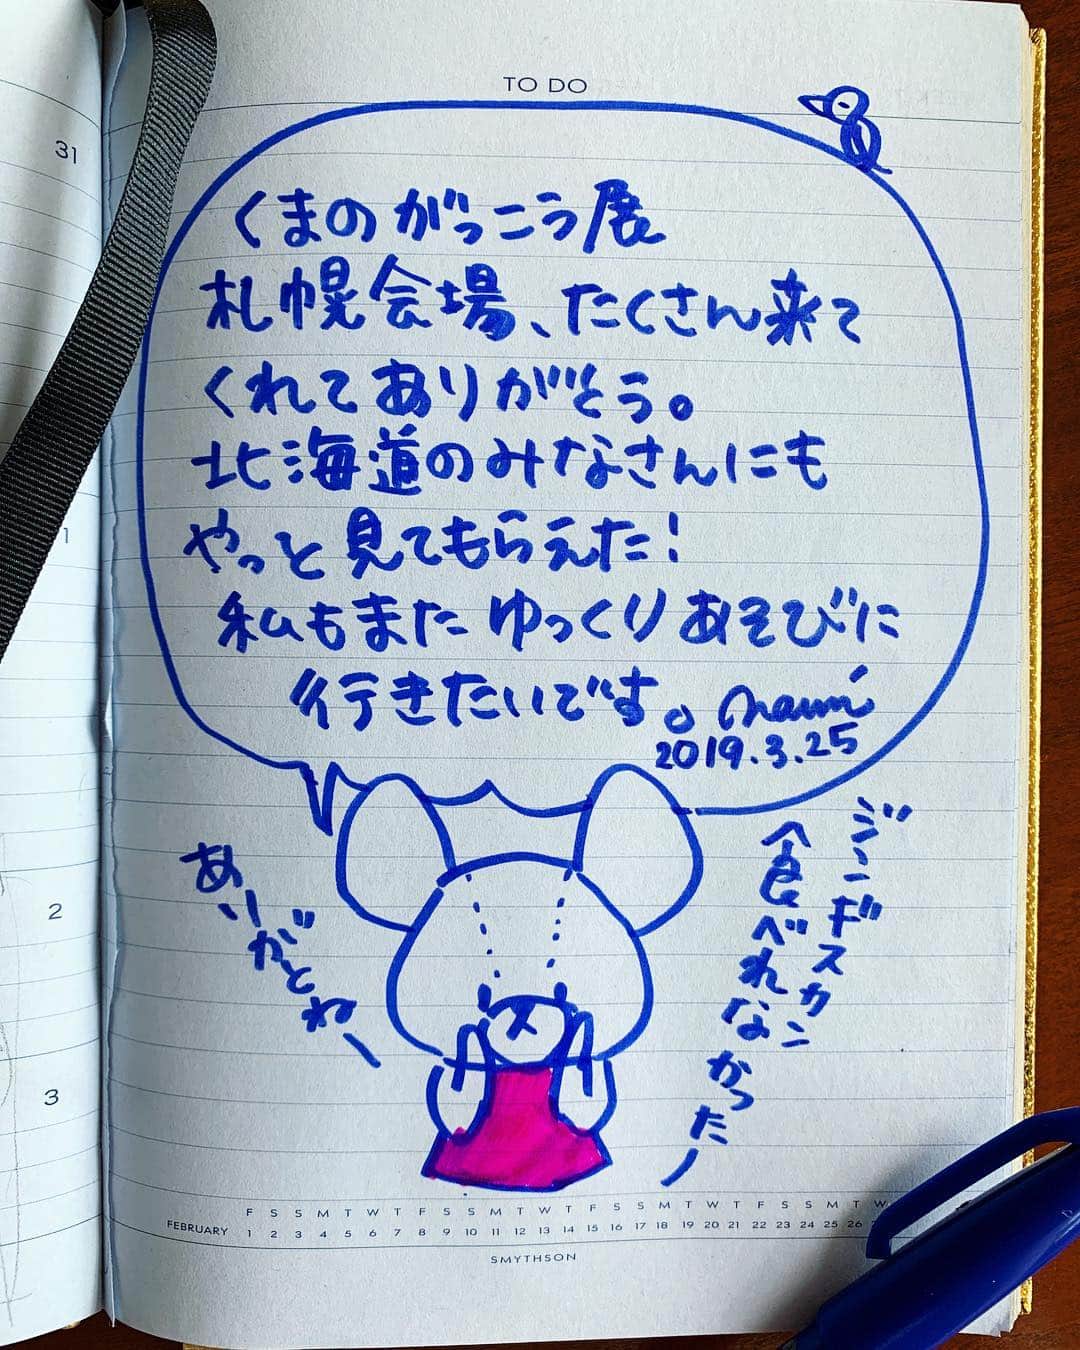 31
1
2
3
TO DO
くまのがっこう展
札幌会場、たくさん来て
くれてありがとう。
北海道のみなさんにも
やっと見てもらえた!
私もまたゆっくりあそびに
行きたいです。 naumi
2019.3.25
ありがとねー
ジンギスカン
食べれなかったー
F S S M T W T F S S M T W T F S S M T W T F S S M T W
FEBRUARY 1 2 3 4 5 6 7 8 9 10 11 12 13 14 15 16 17 18 19 20 21 22 23 24 25 26
SMYTHSON